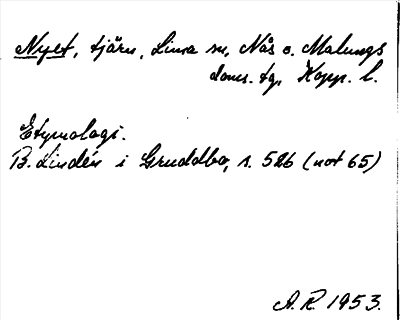 Nyet, tjärn, Lima sn, Nås o. Malungs
doms. tg, Kopp. l.
Etymologi.
B. Lindén i Gruddbo, s. 526 (not 65)
A. R. 1953.